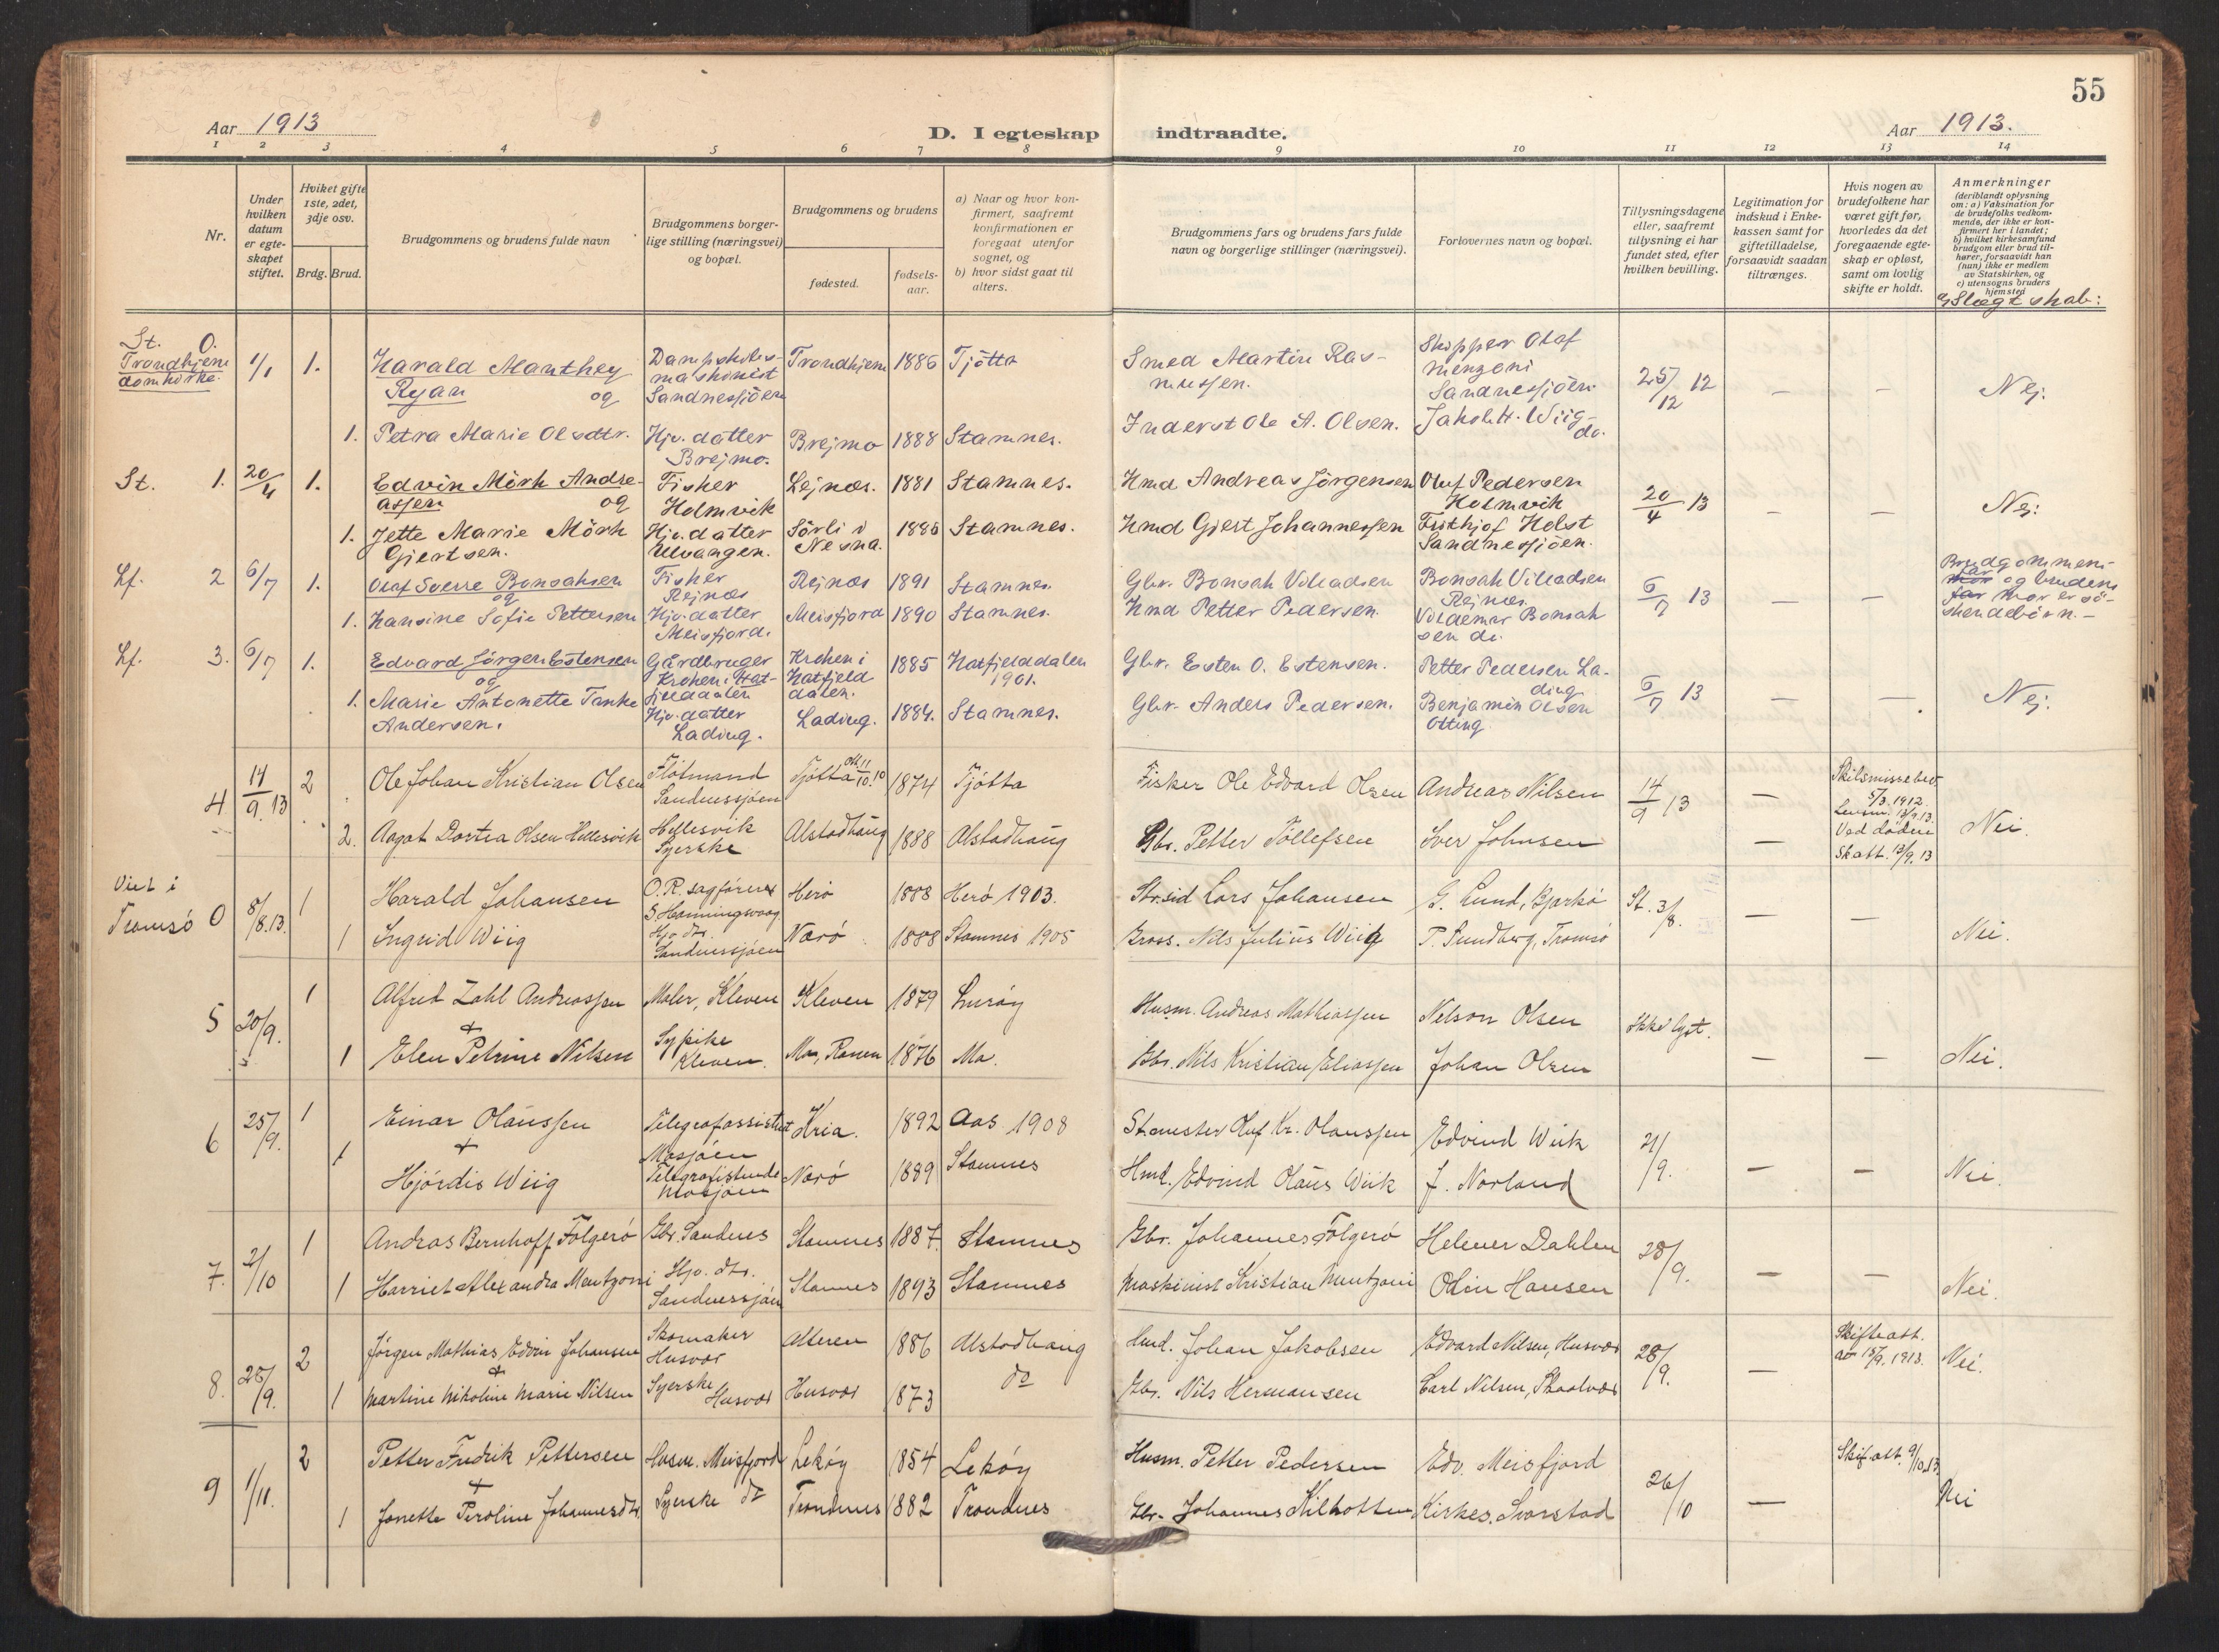 55
Aar 1913
D. I egteskap indtraadte.
Aar 1913.
1 2 3 4 5 6 7 8 9 10 11 12 13 14
Nr.
Under hvilken datum er egteskapet stiftet.
Hvilket gifte 1ste, 2det, 3dje osv.
Brdg. Brud.
Brudgommens og brudens fulde navn
Brudgommens borgerlige stilling (næringsvei) og bopæl.
Brudgommens og brudens
fødested.
fødselsaar.
a) Naar og hvor konfirmert, saafremt konfirmationen er foregaat utenfor sognet, og
b) hvor sidst gaat til alters.
Brudgommens fars og brudens fars fulde navn og borgerlige stillinger (næringsvei).
Forlovernes navn og bopæl.
Tillysningsdagene eller, saafremt tillysning ei har fundet sted, efter hvilken bevilling.
Legitimation for indskud i Enkekassen samt for giftetilladelse, forsaavidt saadan tiltrænges.
Hvis nogen av brudefolkene har været gift før, hvorledes da det foregaaende egteskap er opløst, samt om lovlig skifte er holdt.
Anmerkninger
(deriblandt oplysning om: a) Vaksination for de brudefolks vedkommende, der ikke er konfirmert her i landet;
b) hvilket kirkesamfund brudgom eller brud tilhører, forsaavidt han (hun) ikke er medlem av Statskirken, og
c) utensogns bruders hjemsted
Slægtskab:
St. 0. Trondhjem domkirke. 1/1 1. Harald Manthey Ryan og Dampskibsmaskinist Sandnessjöen Trondhjem 1886 Tjötta Smed Martin Rasmussen. Skipper Olaf Menzoni Sandnessjöen. 25/12 12 — — Nej.
1. Petra Marie Olsdtr. Hjv. datter Brejmo. Brejmo 1888 Stamnes. Inderst Ole A. Olsen. Jakob H. Wiig do.
St. 1. 20/4 1. Edvin Mörk Andreassen og Fisker Holmvik Lejnes. 1881 Stamnes. Kmd Andreas Jörgensen Oluf Pedersen Holmvik 20/4 13 — — Nej.
1. Jette Marie Mörk Gjertsen. Hjv. datter Ulvangen. Sörli i Nesna. 1885 Stamnes. Kmd Gjert Johannessen Frithjof Holst Sandnessjöen.
Lf. 2 6/7 1. Olaf Sverre Bonsaksen og Fisker Rejnes Rejnes 1891 Stamnes. Gbr. Bonsak Villadsen Bonsak Villadsen Rejnes. 6/7 13 — — Brudgommens far og brudens mor er söskendebörn. —
1. Hansine Sofie Pettersen Hjv. datter Meisfjord. Meisfjord 1890 Stamnes. Kmd Petter Pedersen. Voldemar Bonsaksen do.
Lf. 3. 6/7 1. Edvard Jörgen Estensen og Gårdbruger Kroken i Hatfjelddalen Kroken i Hatfjelddalen. 1885 Hatfjelddalen 1901. Gbr. Esten O. Estensen. Petter Pedersen Lading 6/7 13 — — Nej.
1. Marie Antonette Tanke Andersen. Hjv. datter Lading. Lading. 1884. Stamnes. Gbr. Anders Pedersen. Benjamin Olsen Otting
4 14/9 13 2 Ole Johan Kristian Olsen Flötmand Sandnessjøen Tjøtta 1874 Tjøtta Fisker Ole Edvard Olsen Andreas Nilsen 14/9 13 — Skilsmissebev. 5/3 1912.
2. Aagot Dortea Olsen Hellesvik Hellesvik Syerske Alstadhaug 1888 Alstadhaug Gbr. Petter Tollefsen Iver Johnsen — Ved døden Skatt. 13/9 13 Nei.
Viet i Tromsö 0 8/8.13. 1 Harald Johansen O. R. sagförer S. Honningsvaag Herö 1888 Herö 1903. Str.sid Lars Johansen G. Lund, Bjarkö St. 3/8. — —
1 Ingrid Wiig Hjv. dtr. Sandnessjøen Nærö 1888 Stamnes 1905 Gross. Nils Julius Wiig P. Sundberg, Tromsö Nei.
5 20/9. 1 Alfred Zahl Andreassen + Maler, Kleven Kleven 1879 Lurøy Husm. Andreas Mathiassen Nelson Olsen Ikke lyst.
1 Elen Petrine Nilsen Sypike Kleven. Mo, Ranen 1876 Mo. Gbr. Nils Kristian Eliassen Johan Olsen — — Nei.
6 25/9. 1 Einar Olaussen + Telegrafassistent Mosjøen Kria. 1892 Aas 1908 Oluf Kr. Olaussen Edvind Wiik 21/9. — — Nei.
1 Hjördis Wiig Telegrafistinde Mosjøen Nærö 1889 Stamnes Hmd. Edvind Olaus Wiik J. Norland
7. 2/10 1 Andreas Bernhoff Folgerö Gbr. Sandnes Stamnes 1887. Stamnes Gbr. Johannes Folgerö Helmer Dahlen 28/9. — — Nei.
1 Harriet Alexandra Mentzoni Hjv. dtr. Sandnessjøen Stamnes 1893 Stamnes Maskinist Kristian Mentzoni Odin Hansen
8. 28/9. 2 Jörgen Mathias Edvin Johansen + Skomaker Husvær Alteren 1886 Alstadhaug Hmd. Johan Jakobsen Edvard Nilsen, Husvær 28/9. — Skifteatt. av 15/9. 1913. Nei.
1 Martine Nikoline Marie Nilsen Syerske Husvær Husvær 1873 do Gbr. Nils Hermansen Carl Nilsen, Skaalvær
9 1/11. 2 Petter Fredrik Pettersen + Husm. Meisfjord Lekøy 1854 Lekøy Husm. Petter Pedersen Edv. Meisfjord 26/10 — Skif. att. 9/10.13. Nei
1 Jonette Peroline Johannesdtr. Syerske do Trondnes 1882 Trondnes Gbr. Johannes Kilbotten Kirkes. Svarstad